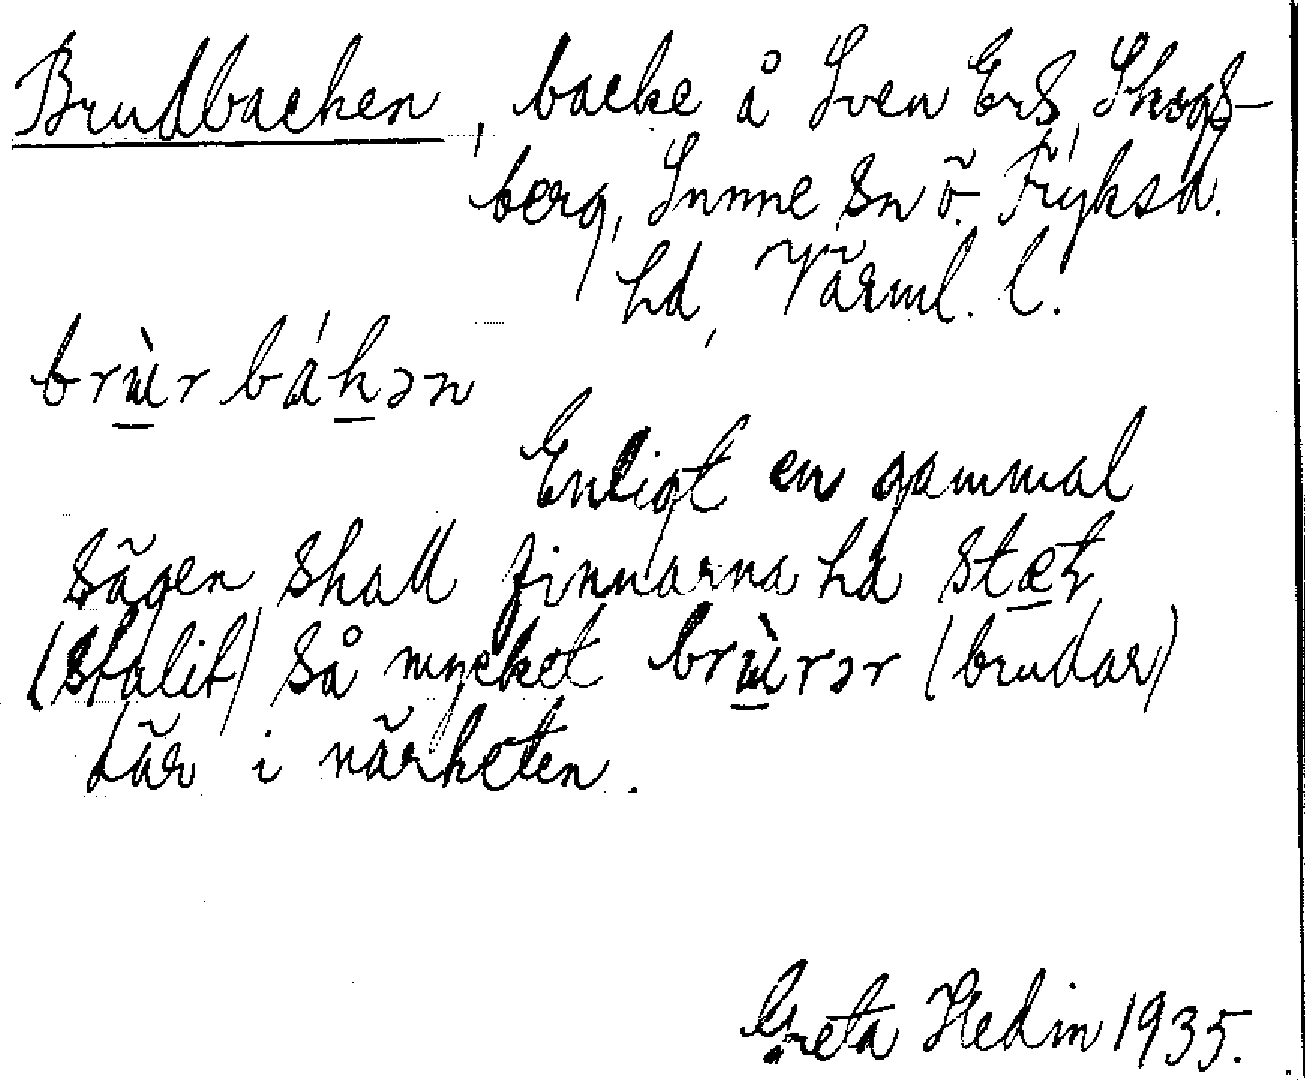 Brudbacken, backe å Sven Ers, Skogs-
berg, Sunne sn ö. Fryksd.
hd, Värml. l.
brùr bákən
Enligt en gammal
sägen skall finnarna ha stæḷ
(stulit) så mycket brùrər (brudar)
här i närheten.
Greta Hedin 1935.